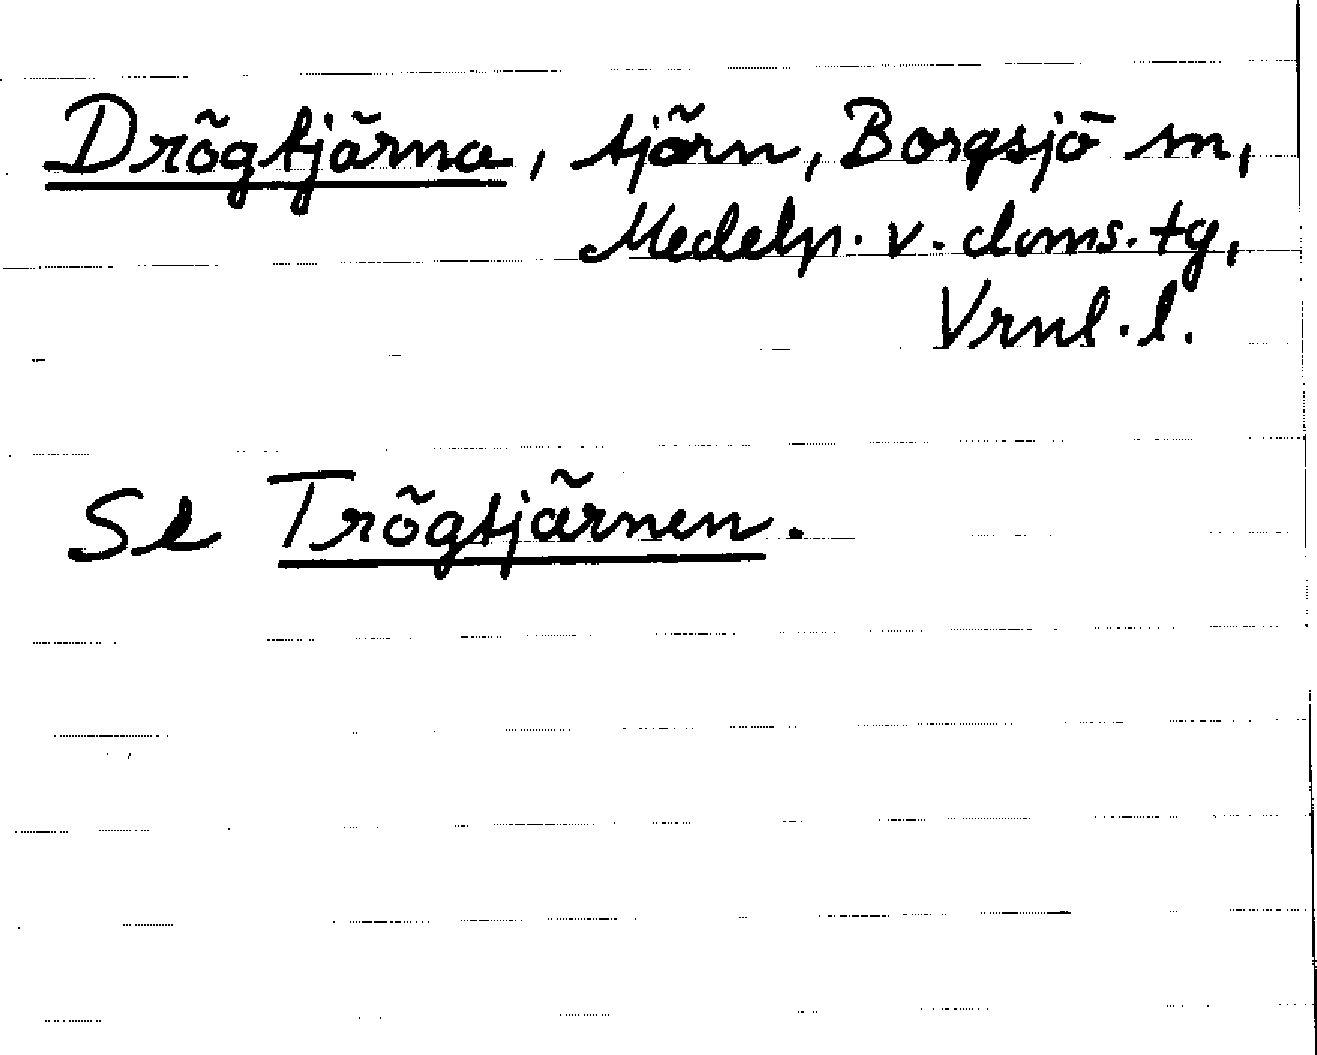 Drögtjärna, tjärn, Borgsjö sn,
Medelp. v. doms. tg,
Vrnl. l.
Se Trögtjärnen.